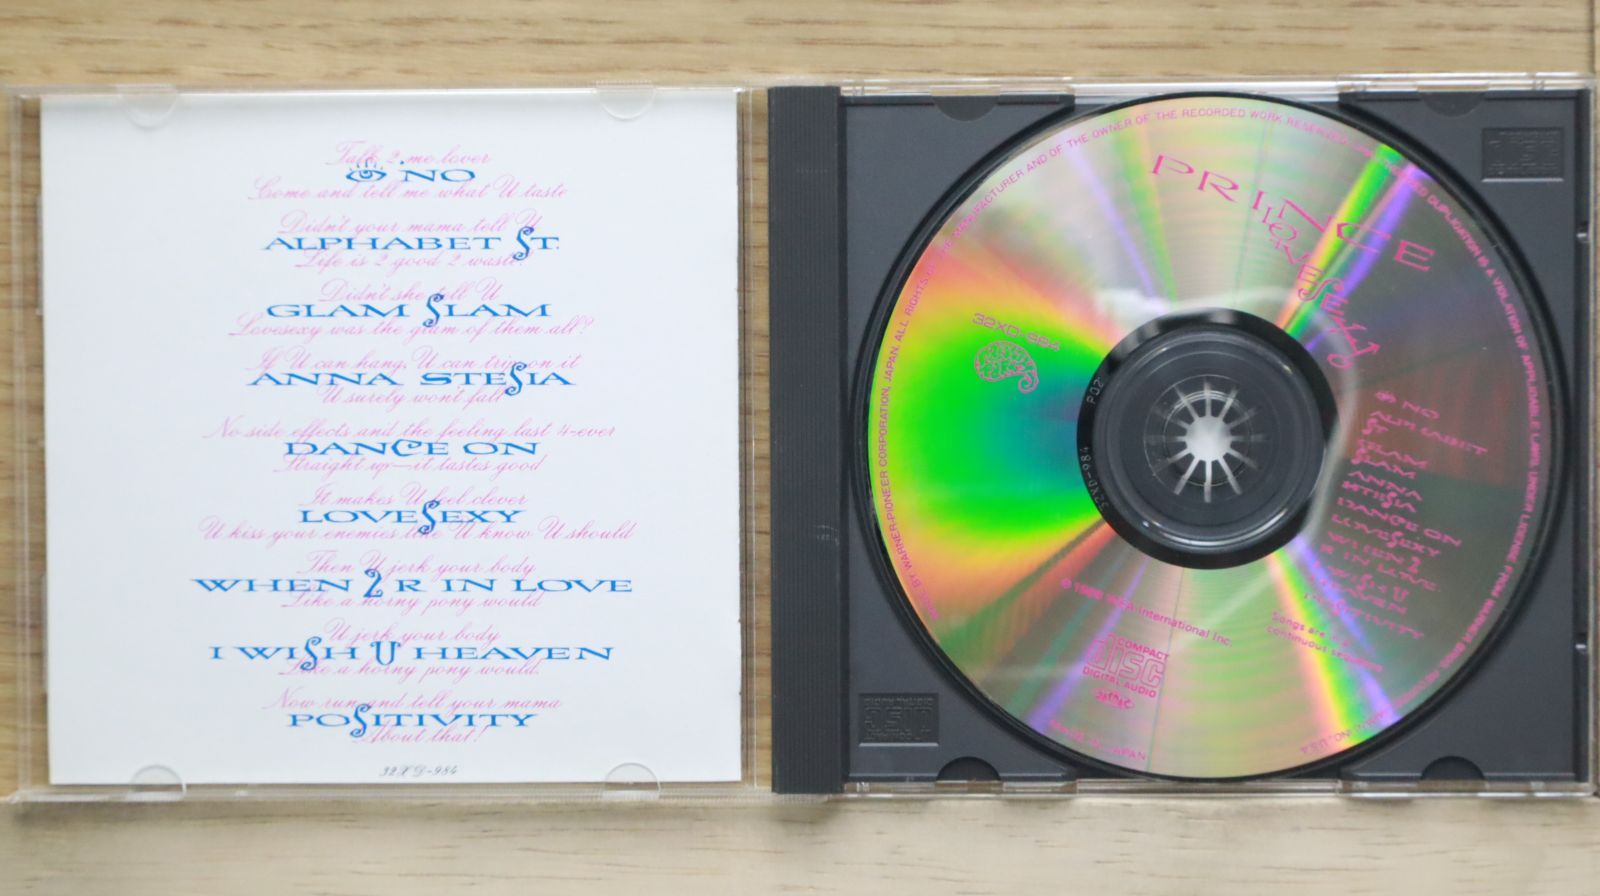 Talk 2 me lover
👁 NO
Come and tell me what U taste
Didn't your mama tell U
ALPHABET ST.
Life is 2 good 2 waste?
Didn't she tell U
GLAM SLAM
Lovesexy was the glam of them all?
If U can hang, U can trip on it
ANNA STESIA
U surely wont fall
No side effects and the feeling last 4-ever
DANCE ON
Straight up—it tastes good
It makes U feel clever
LOVESEXY
U kiss your enemies like U know U should
Then U jerk your body
WHEN 2 R IN LOVE
Like a horny pony would
U jerk your body
I WISH U HEAVEN
Like a horny pony would.
Now run and tell your mama
POSITIVITY
About that!
32XD-984
PRINCE
LOVESEXY
32XD-984
PAISLEY PARK
👁 NO
ALPHABET
ST
GLAM
SLAM
ANNA
STESIA
DANCE ON
LOVESEXY
WHEN 2
R IN LOVE
I WISH U
HEAVEN
POSITIVITY
Songs are in
continuous sequence
℗ 1988 WEA International Inc.
COMPACT
disc
DIGITAL AUDIO
MADE IN JAPAN
BY WARNER-PIONEER CORPORATION, JAPAN. ALL RIGHTS OF THE MANUFACTURER AND OF THE OWNER OF THE RECORDED WORK RESERVED. DUPLICATION IS A VIOLATION OF APPLICABLE LAWS. UNDER LICENSE FROM WARNER BROS.
32XD-984
COMPACT
disc
DIGITAL AUDIO